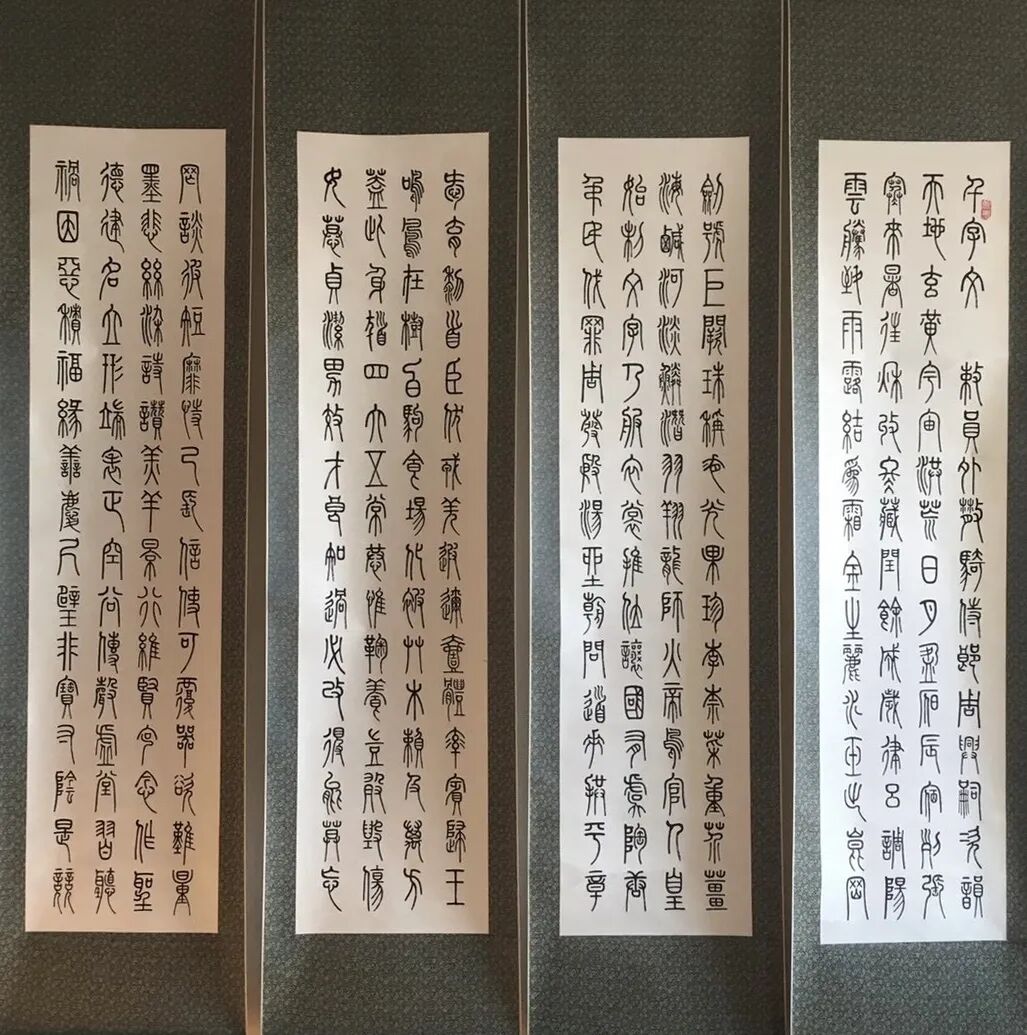 千字文 敕員外散騎侍郎周興嗣次韻
天地玄黃宇宙洪荒日月盈昃辰宿列張
寒來暑往秋收冬藏閏餘成歲律呂調陽
雲騰致雨露結為霜金生麗水玉出崑岡
劍號巨闕珠稱夜光果珍李柰菜重芥薑
海鹹河淡鱗潛羽翔龍師火帝鳥官人皇
始制文字乃服衣裳推位讓國有虞陶唐
弔民伐罪周發殷湯坐朝問道垂拱平章
愛育黎首臣伏戎羌遐邇壹體率賓歸王
鳴鳳在樹白駒食場化被草木賴及萬方
蓋此身髮四大五常恭惟鞠養豈敢毀傷
女慕貞潔男效才良知過必改得能莫忘
罔談彼短靡恃己長信使可覆器欲難量
墨悲絲染詩讚羔羊景行維賢克念作聖
德建名立形端表正空谷傳聲虛堂習聽
禍因惡積福緣善慶尺璧非寶寸陰是競